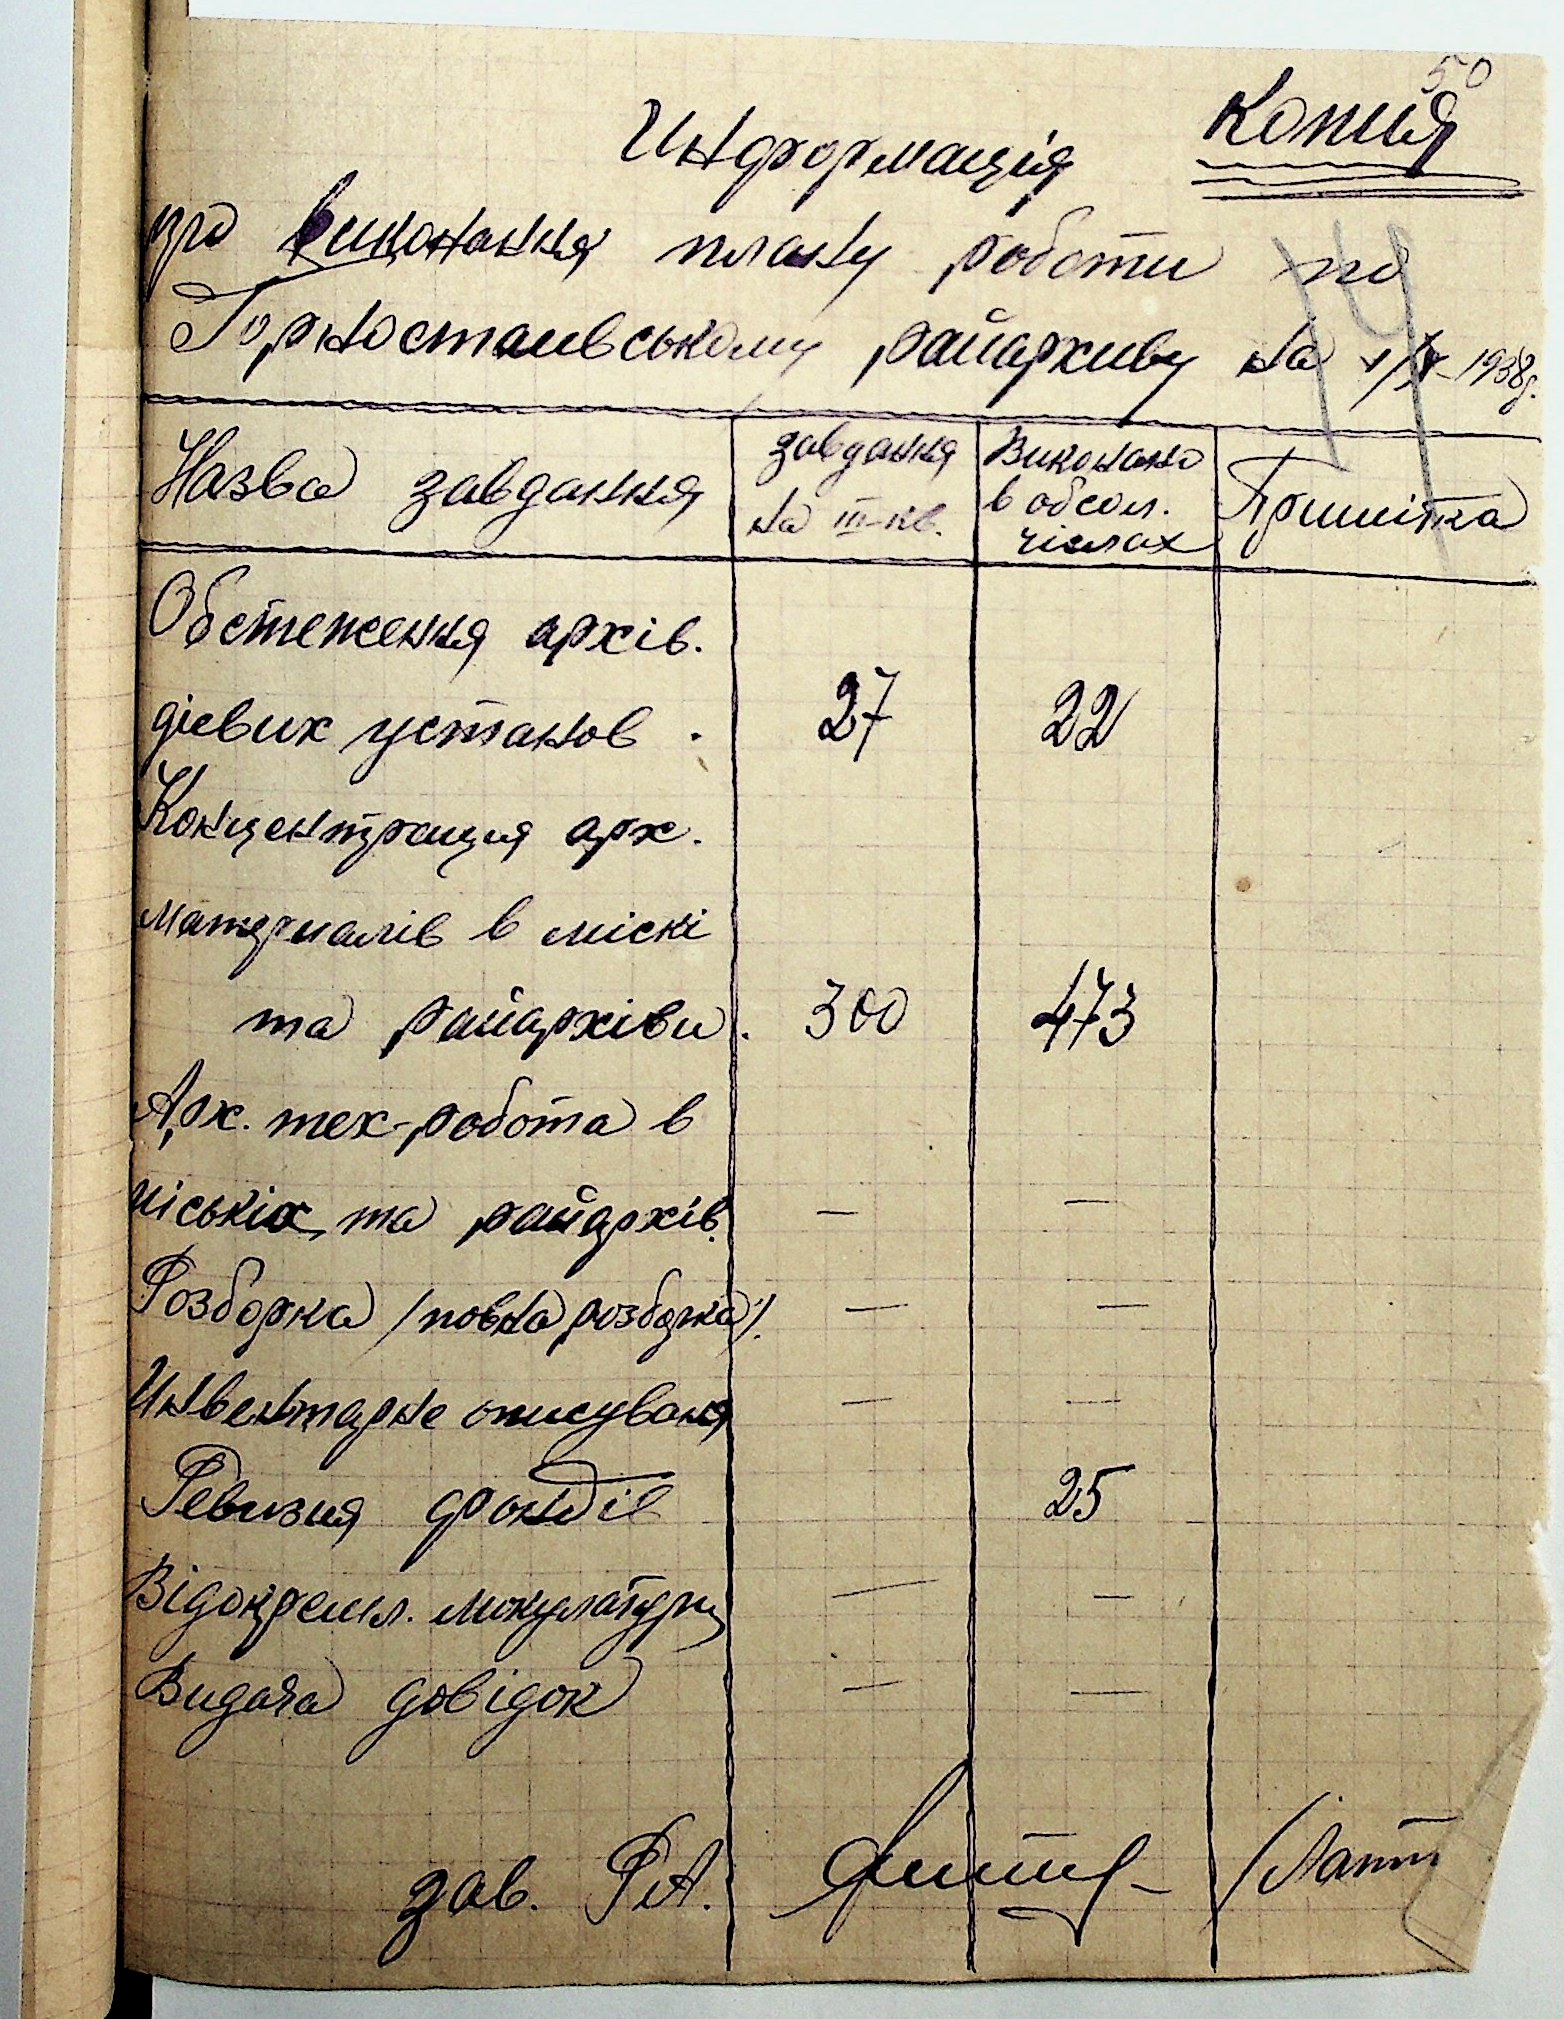 50
Копия
Информація
про виконання плану роботи по
Горностаивському райархиву на 1/X-1938г.
Назва завдання
завдання
на III-кв.
Виконано
в абсол.
числах
Примітка
Обстеження архів.
дієвих установ . 27 22
Концентрация арх.
материалів в міскі
та райархіви. 300 473
Арх. тех-робота в
міськіх та райархів. — —
Розборка /повна розборка/. — —
Инвентарне описуваня — —
Ревизия фондів 25
Відокремл. макулатури — —
Видача довідок — —
зав. РА.